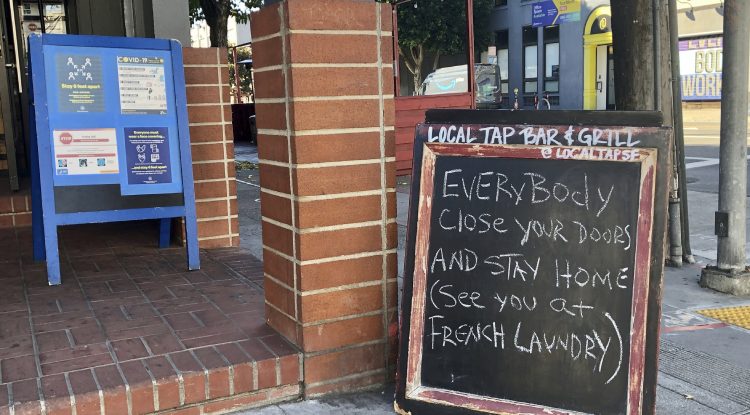 COVID-19
Stay 6 feet apart
STOP
Everyone must
wear a face covering
LOCAL TAP BAR & GRILL
@LOCALTAPSF
EVERYBODY
Close YOUR DOORS
AND STAY HOME
(See you at
FRENCH LAUNDRY)